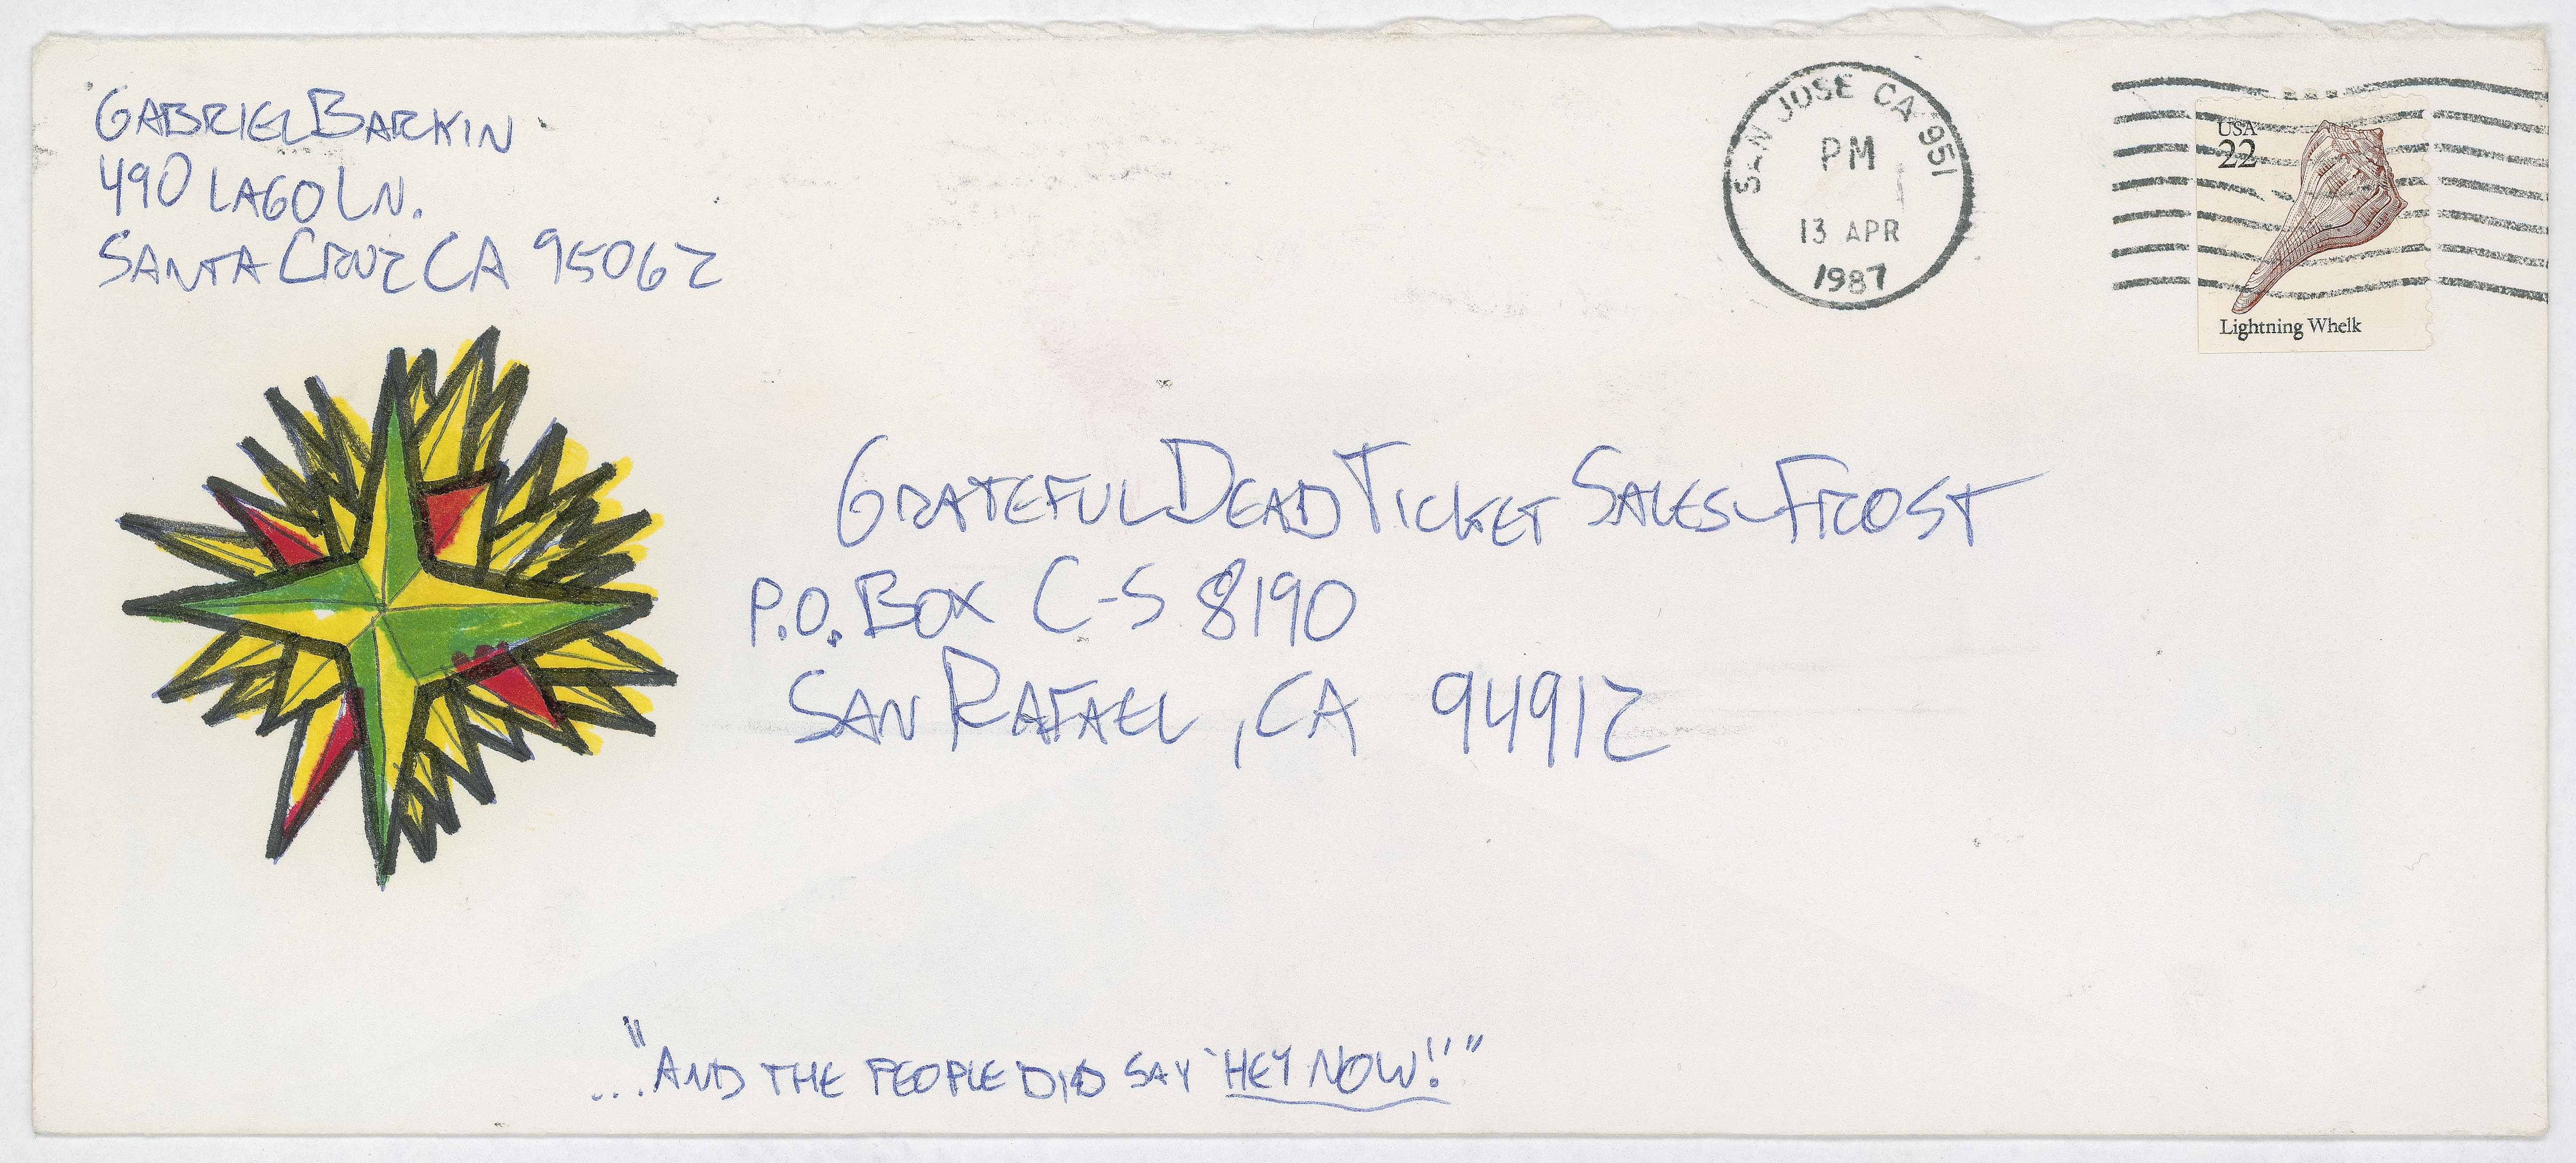 GABRIEL BARKIN
490 LAGO LN.
SANTA CRUZ CA 95062
SAN JOSE CA 951
PM
13 APR
1987
USA
22
Lightning Whelk
GRATEFUL DEAD TICKET SALES-FROST
P.O. BOX C-S 8190
SAN RAFAEL, CA 94912
..."AND THE PEOPLE DID SAY 'HEY NOW!'"